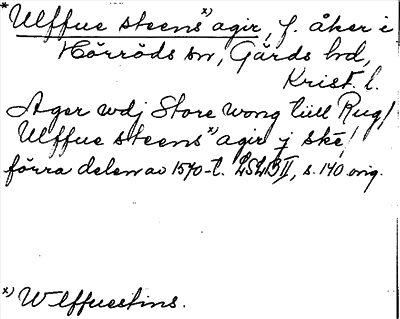 * Ulffue steens x) agir, f. åker i
Hörröds sn, Gärds hd,
Krist. l.
Ager wdj Store wong tiill Rug/
Ulffue steens x) agir j skē/
förra delen av 1570-t. LSLB II, s. 140 orig.
x) Wlffuestins.